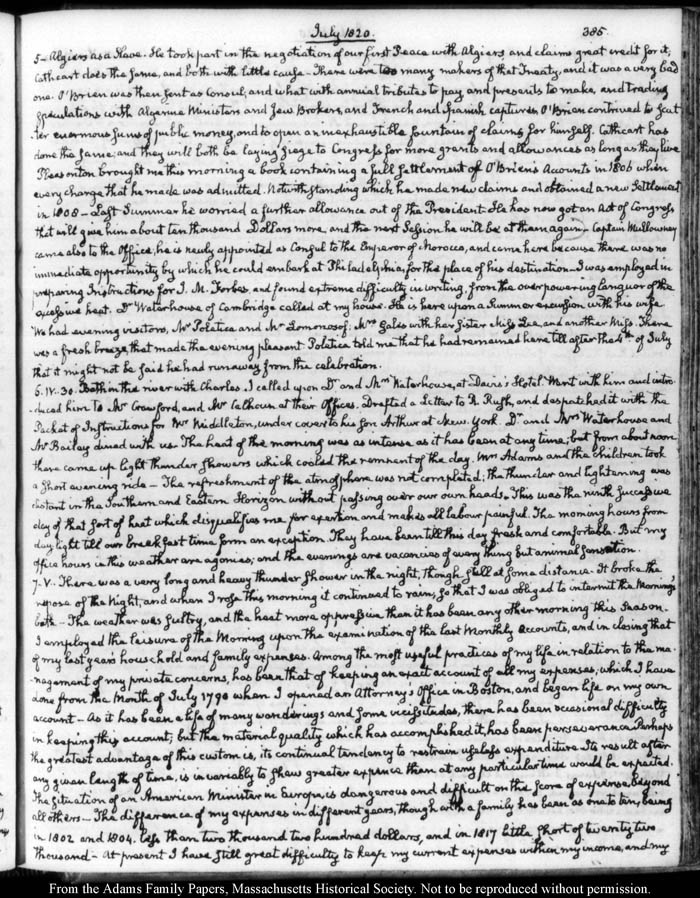 July 1820.
385.
5— Algiers as a Slave. He took part in the negotiation of our first Peace with Algiers and claims great credit for it,
Cathcart does the same, and both with little cause. There were too many makers of that Treaty, and it was a very bad
one. O'Brien was then sent as Consul; and what with annual tributes to pay and presents to make, and trading
Speculations with Algerine Ministers and Jew Brokers, and French and Spanish captures, O'Brien continued to scat
ter enormous sums of public money, and to open an inexhaustible fountain of claims for himself. Cathcart has
done the same; and they will both be laying siege to Congress for more grants and allowances as long as they live
Pleasonton brought me this morning a book containing a full settlement of O'Brien's Accounts in 1806 when
every charge that he made was admitted. Notwithstanding which he made new claims and obtained a new Settlement
in 1808— Last Summer he worried a further allowance out of the President. He has now got an Act of Congress
that will give him about ten thousand Dollars more, and the next Session he will be at them again— Captain Mullowney
came also to the Office; he is newly appointed as Consul to the Emperor of Morocco, and came here because there was no
immediate opportunity by which he could embark at Philadelphia, for the place of his destination— I was employed in
preparing Instructions for J. M. Forbes, and found extreme difficulty in writing, from the overpowering languor of the
excessive heat. Dr Waterhouse of Cambridge called at my house. He is here upon a Summer excursion with his wife
We had evening visitors, Mr Poletica and Mr Lomonosof. Mrs Gales with her Sister Miss Lee, and another Miss. There
was a fresh breeze, that made the evening pleasant. Poletica told me that he had remained here till after the 4th of July
that it might not be said he had run away from the celebration.
6. IV:30. Bath in the river with Charles. I called upon Dr and Mrs Waterhouse, at Davis's Hotel. Went with him and intro-
duced him to Mr Crawford, and Mr Calhoun at their Offices. Drafted a Letter to R. Rush, and despatched it with the
Packet of Instructions for Mr Middleton, under cover to his son Arthur at New York. Dr and Mrs Waterhouse and
Mr Bailey dined with us. The heat of the morning was as intense as it has been at any time; but from about noon
there came up light thunder showers which cooled the remnant of the day. Mrs Adams and the children took
a short evening ride— The refreshment of the atmosphere was not completed; the thunder and lightening was
distant in the Southern and Eastern Horizon without passing over our own heads. This was the ninth successive
day of that sort of heat which disqualifies me for exertion and makes all labour painful. The morning hours from
day light till our breakfast time form an exception. They have been till this day fresh and comfortable. But my
office hours in this weather are agonies; and the evenings are vacancies of every thing but animal sensation.
7. V. There was a very long and heavy thunder shower in the night, though still at some distance. It broke the
repose of the Night, and when I rose this morning it continued to rain; so that I was obliged to intermit the Morning's
bath— The weather was sultry, and the heat more oppressive than it has been any other morning this Season.
I employed the leisure of the Morning upon the examination of the last Monthly Accounts, and in closing that
of my last year's household and family expenses. Among the most useful practices of my life in relation to the ma-
nagement of my private concerns, has been that of keeping an exact account of all my expenses; which I have
done from the Month of July 1790 when I opened an Attorney's Office in Boston, and began life on my own
account— As it has been a life of many wanderings and some vicissitudes, there has been occasional difficulty
in keeping this account; but the material quality which has accomplished it, has been perseverance. Perhaps
the greatest advantage of this custom is, its continual tendency to restrain useless expenditure. Its result after
any given length of time, is invariably to shew greater expence than at any particular time would be expected.
The situation of an American Minister in Europe, is dangerous and difficult on the score of expense, beyond
all others— The difference of my expenses in different years, though with a family has been as one to ten; being
in 1802 and 1804. less than two thousand two hundred dollars, and in 1817 little short of twenty two
thousand— At present I have still great difficulty to keep my current expenses within my income, and my
From the Adams Family Papers, Massachusetts Historical Society. Not to be reproduced without permission.